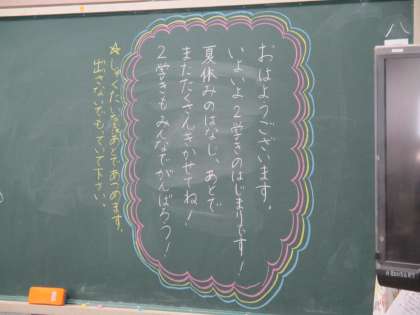 おはようございます。
いよいよ2学きのはじまりです!
夏休みのはなし、あとで
またたくさんきかせてね!
2学きもみんなでがんばろう!
☆しゅくだいなどはあとであつめます。
出さないでもっていて下さい。
八